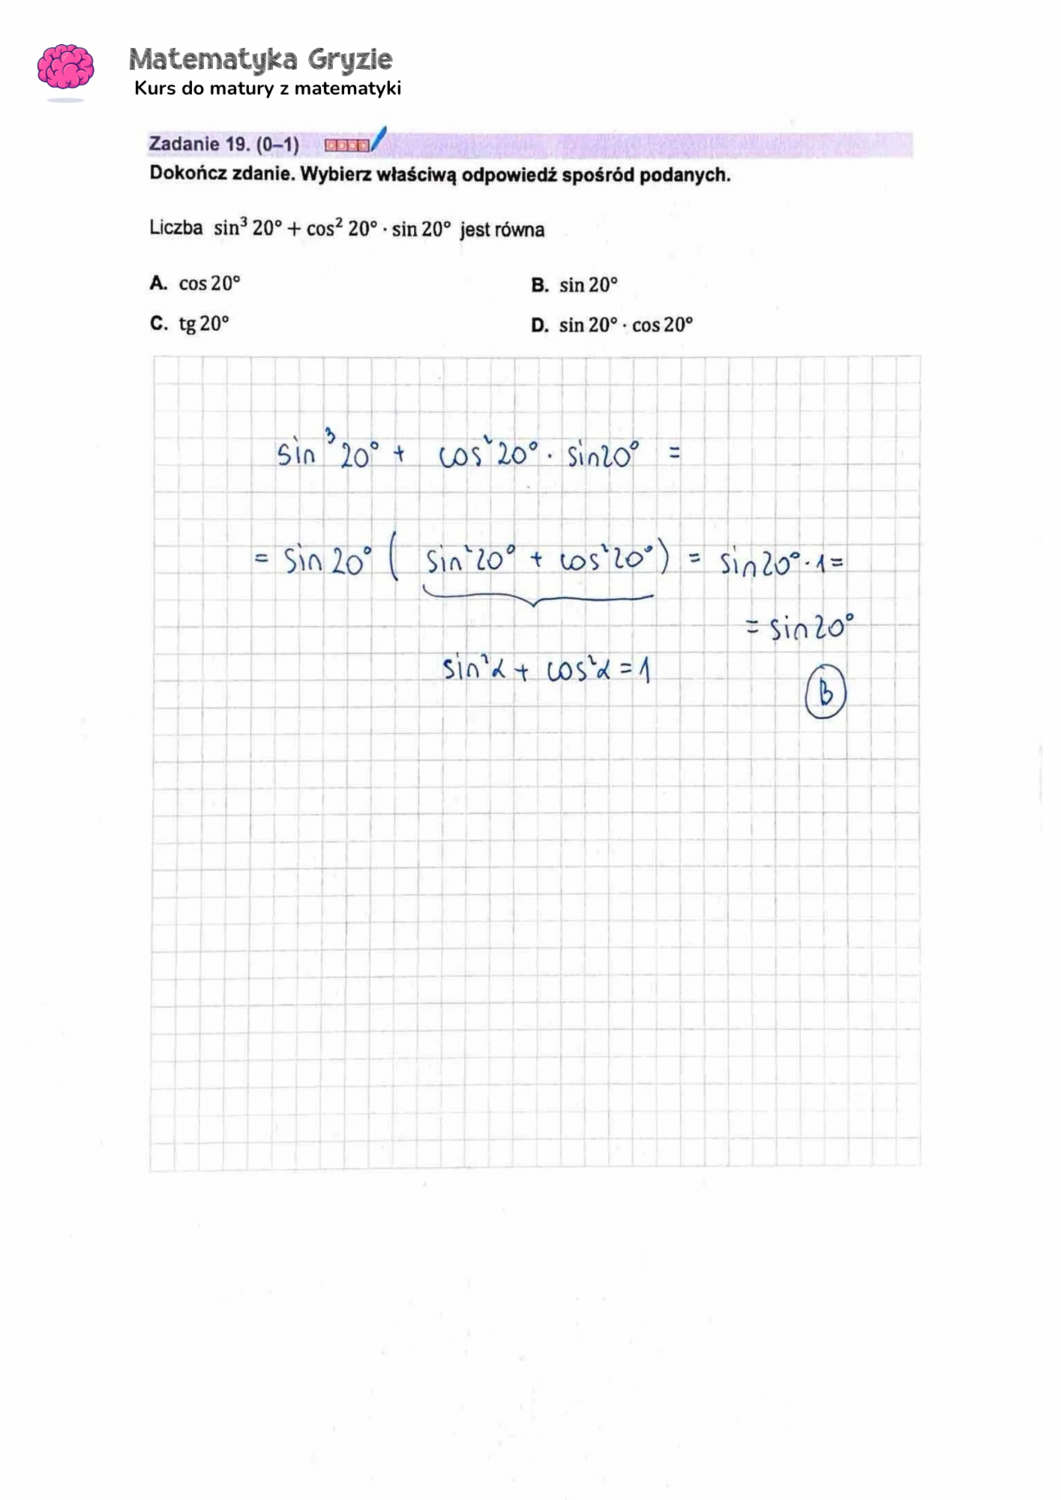 Matematyka Gryzie
Kurs do matury z matematyki
Zadanie 19. (0–1)
Dokończ zdanie. Wybierz właściwą odpowiedź spośród podanych.
Liczba sin³ 20° + cos² 20° · sin 20° jest równa
A. cos 20°
B. sin 20°
C. tg 20°
D. sin 20° · cos 20°
sin³ 20° + cos² 20° · sin 20° =
= sin 20° ( sin² 20° + cos² 20° ) = sin 20° · 1 =
= sin 20°
sin²α + cos²α = 1
B